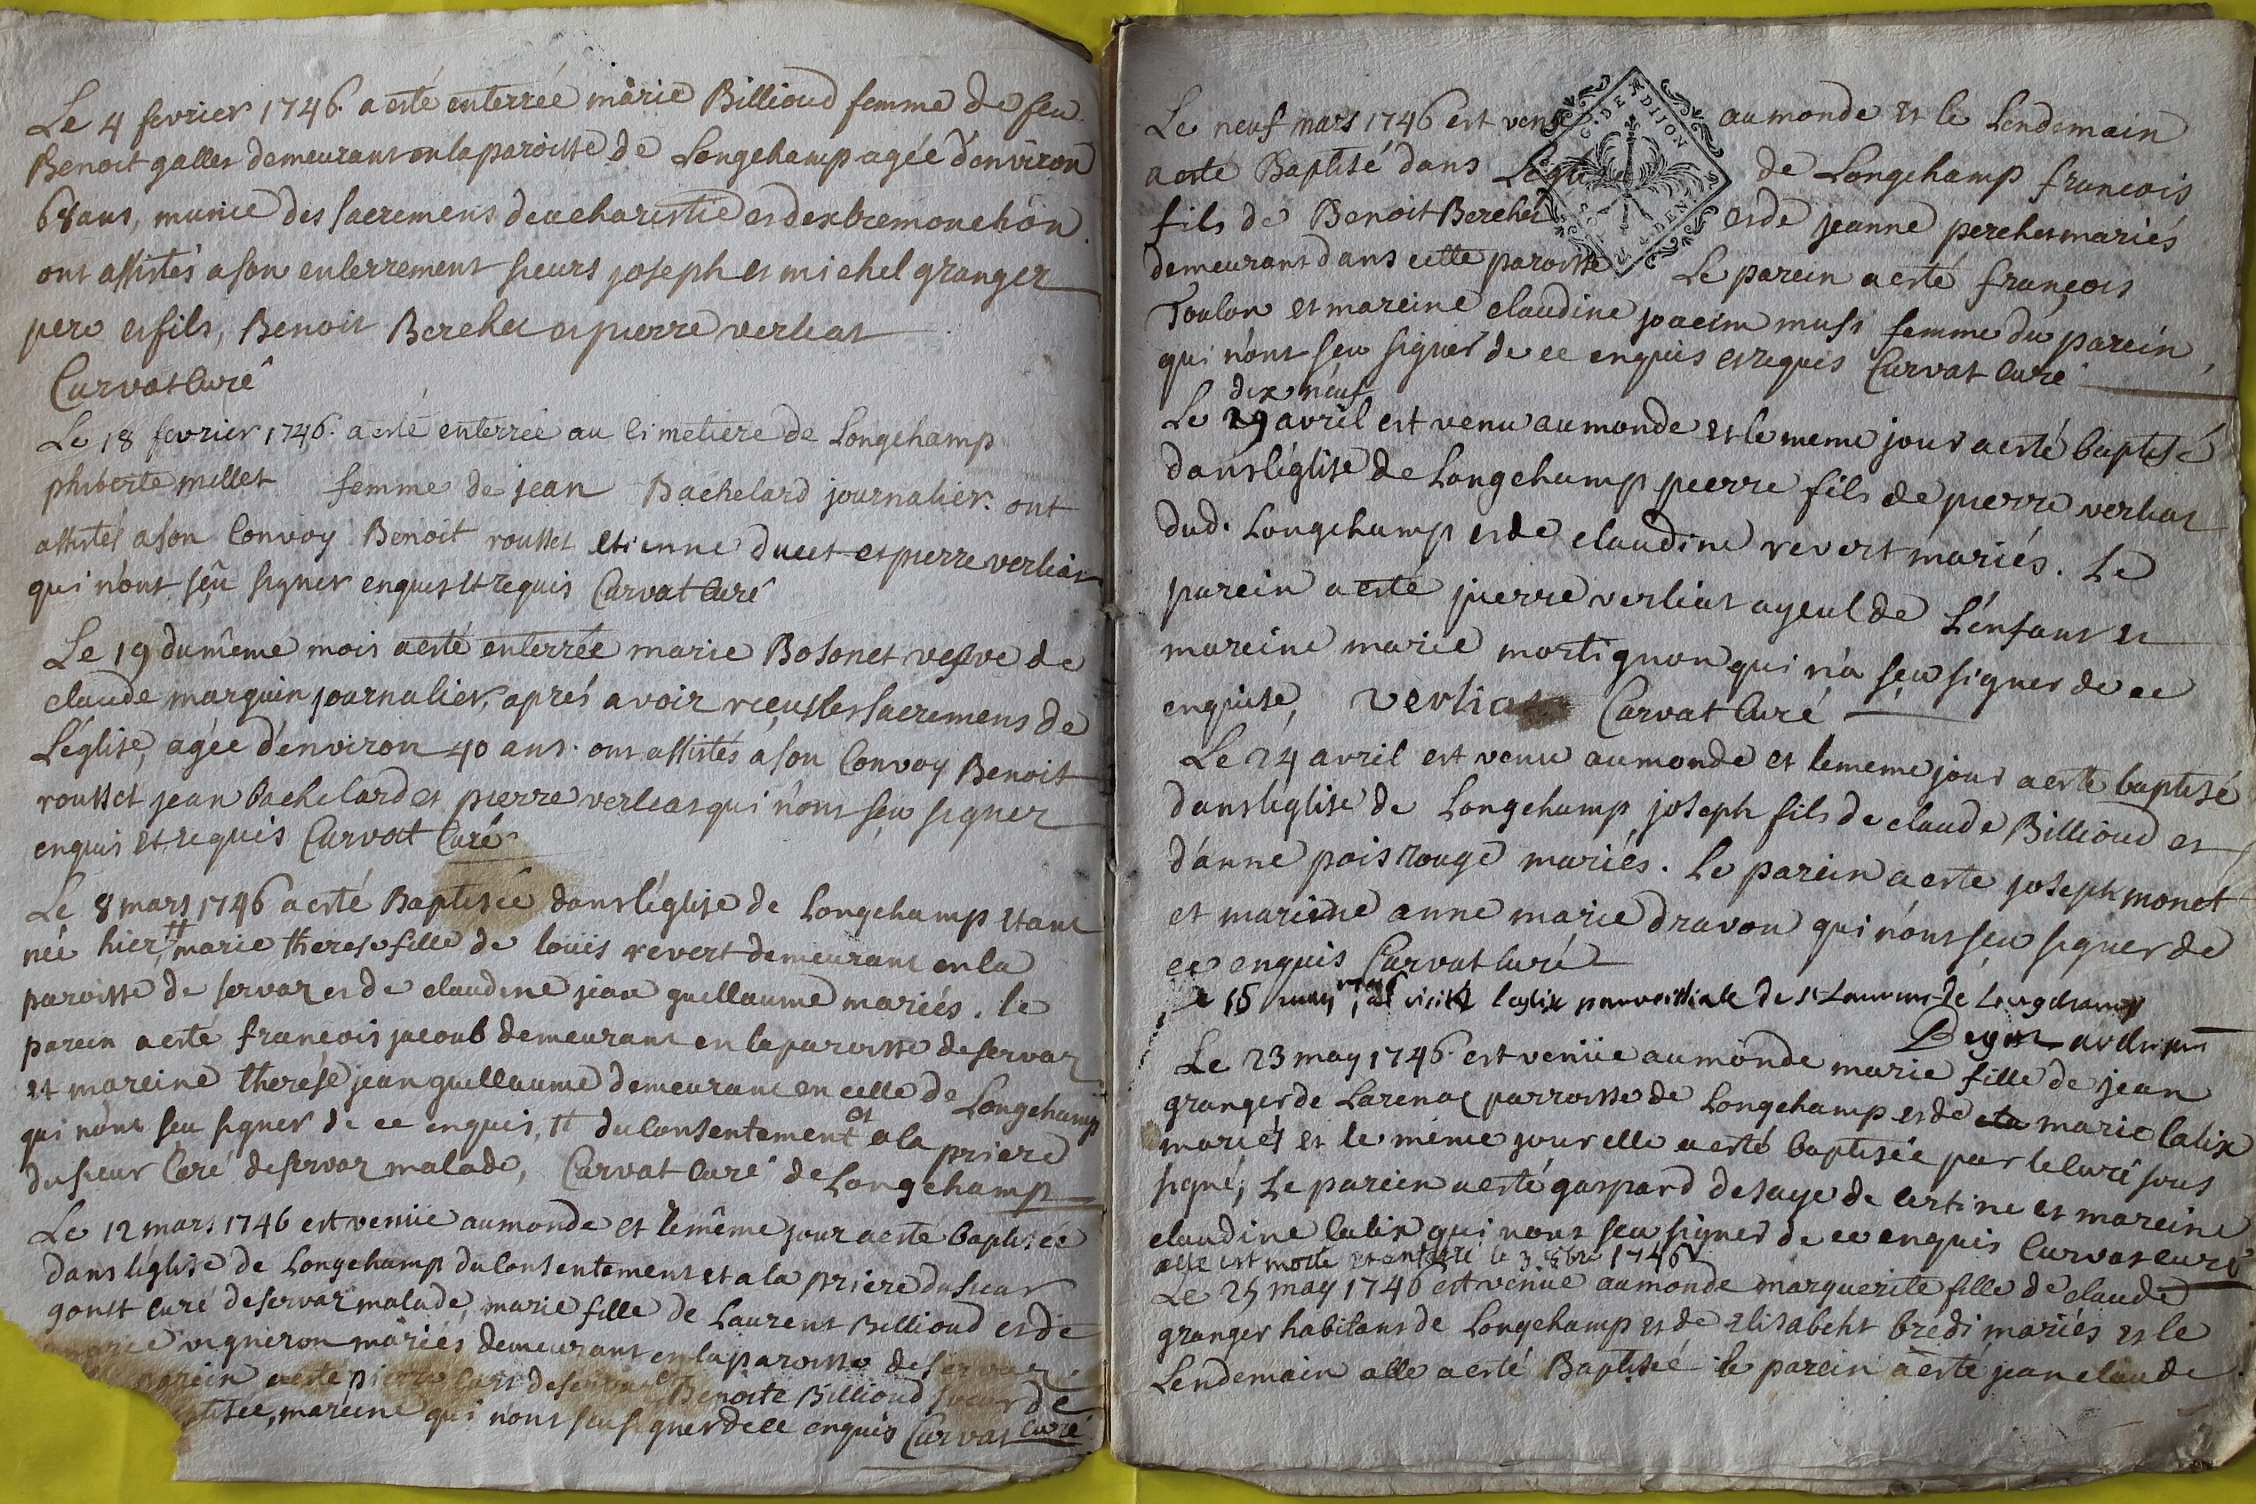 Le 4 fevrier 1746. a esté enterrée marie Billioud femme de feu
Benoit galler demeurant en la paroisse de Longchamp agée d'environ
68 ans, munie des sacremens d'eucharistie et d'extremonction
ont assistés a son enterrement sieurs joseph et michel granger
pere et fils, Benoit Berchet et pierre verliat
Carvat Curé
Le 18 fevrier 1746. a esté enterrée au cimetiere de Longchamp
philberte millet femme de jean Bachelard journalier. ont
assistés a son Convoy Benoit rousset etienne ducet et pierre verliat
qui n'ont sçu signer enquis et requis Carvat Curé
Le 19 du même mois a esté enterrée marie Bosonet vefve de
claude marguin journalier, aprés avoir reçu les sacremens de
L'église, agée d'environ 40 ans. ont assistés a son Convoy Benoit
rousset jean bachelard et pierre verliat qui n'ont sçu signer
enquis et requis Carvat Curé
Le 8 mars 1746 a esté Baptisée dans l'église de Longchamp etant
née hier, # marie therese fille de loüis revert demeurant en la
paroisse de servaz et de claudine jean guillaume mariés. le
parein a esté françois jacoub demeurant en la paroisse de servaz
et mareine therése jean guillaume demeurant en celle de Longchamp
qui n'ont sçu signer de ce enquis, # du consentement et a la priere
du sieur Curé de servaz malade, Carvat Curé de Longchamp
Le 12 mars 1746 est venüe au monde et le même jour a esté baptisée
dans l'église de Longchamp du consentement et a la priere du sieur
goust curé de servaz malade, marie fille de Laurent Billioud et de
vigneron mariés demeurant en la paroisse de servaz.
parein a esté pierre de servaz et Benoite Billioud sœur de
mareine qui n'ont sçu signer de ce enquis Carvat Curé
Le neuf mars 1746 est venu au monde et le Lendemain
a esté Baptisé dans L'église de Longchamp francois
fils de Benoit Berchet et de jeanne perchet mariés
demeurant dans cette paroisse Le parein a esté françois
Toulon et mareine claudine joacim musi femme du parein,
qui n'ont sçu signer de ce enquis et requis Carvat Curé
dix neuf
Le 19 avril est venu au monde et le meme jour a esté baptisé
dans l'église de Longchamp pierre fils de pierre verliat
dud. Longchamp et de claudine revert mariés. Le
parein a esté pierre verliat ayeul de L'énfant et
mareine marie mortignon qui n'a sçu signer de ce
enquise, verliat Carvat Curé
Le 24 avril est venu au monde et le meme jour a esté baptisé
dans l'église de Longchamp joseph fils de claude Billioud et
d'anne pois rouge mariés. Le parein a esté joseph monet
et mareine anne marie dravon qui n'ont sçu signer de
ce enquis Carvat Curé
Le 16 may 1746, a visité l'eglise parroissiale de st Laurent de Longchamp
Le 23 may 1746. est venüe au monde marie fille de jean
granger de Larenaz parroisse de Longchamp et de marie Calix
mariés et le même jour elle a esté baptisée par le Curé sous
signé, Le parein a esté gaspard desaye de Certine et mareine
claudine Calix qui n'ont sçu signer de ce enquis Carvat curé
elle est morte et enterré le 3 1746
Le 25 may 1746 est venüe au monde marguerite fille de claude
granger habitant de Longchamp et de Elisabeht bredi mariés et le
Lendemain elle a esté Baptisée le parein a esté jean claude
C. DE DIJON
DEN